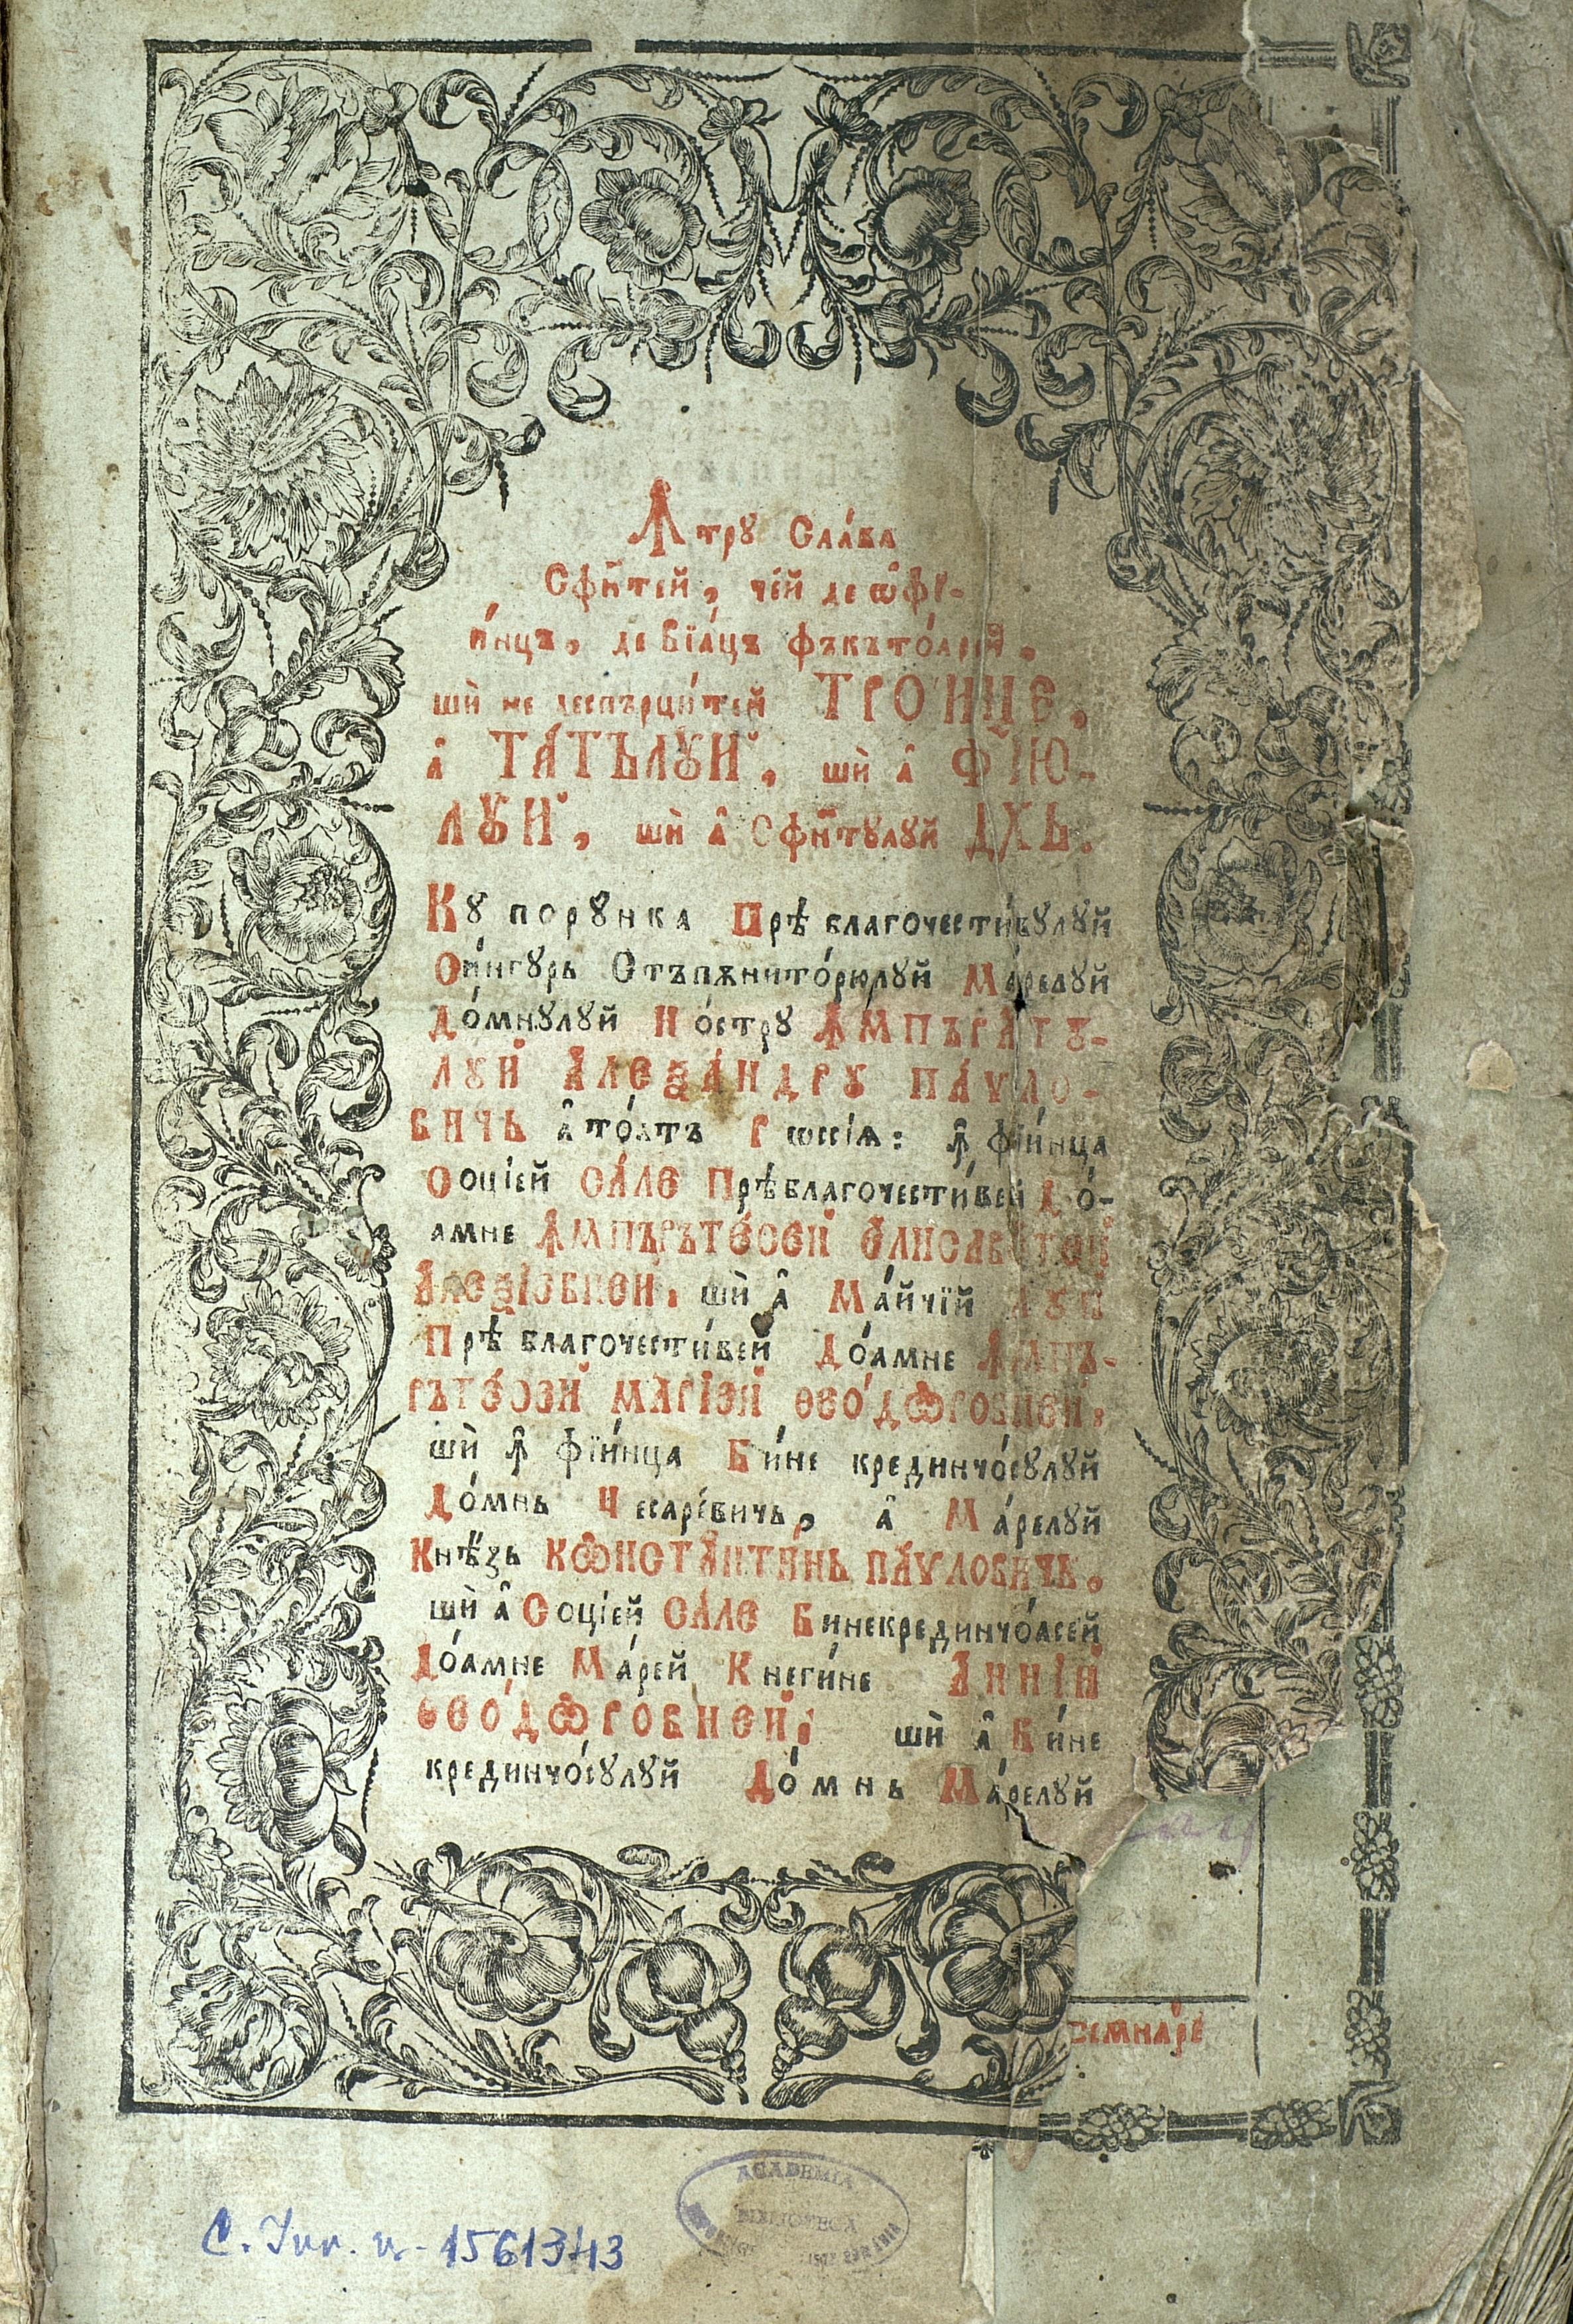 Ꙟтрȣ Сла́ва
Сфи҃нтей, чей де ѡ҆фі-
и́нцъ, де Вїа́цъ фъкъто́арей,
шѝ не деспърци́тей ТРО́ИЦЕ,
а҆ ТА́ТЪЛꙋЙ, шѝ а҆ ФЇЮ-
ЛꙋЙ, шѝ а҆ Сфи҃нтулуй ДХЬ.
Кꙋ порꙋнка Прѣ благочести́вулуй
Си́нгꙋрь Стъпѫнито́рюлуй Ма́релуй
До́мнꙋлуй Но́стру ꙞМПЪРА́ТꙊ-
ЛУЙ АЛЕѮА́НДРꙊ ПА́ѴЛО-
ВИЧЬ а҆ то́атъ Рѡссїѧ: ꙟ҆ фїи́нца
Соцїей СА́ЛЕ Прѣблагочести́вей До́-
амне ꙞМПЪРЪТЕ́СЕЙ ЕЛИСАВЕТЕЙ
АЛЕѮІЕВНЕЙ, шѝ а҆ Ма́йчїй ЛУЙ
Прѣ благочести́вей До́амне ꙞМПЪ-
РЪТЕ́СЕЙ МАРІЕЙ ѲЕО́ДѠРОВНЕЙ,
шѝ ꙟ҆ фїи́нца Би́не крединчо́сулуй
До́мнь Чесаре́вичь, а҆ Ма́релуй
Кнѣ́зь КѠНСТАНТИ́НЬ ПА́ѴЛОВИЧЬ,
шѝ а҆ Соцїей СА́ЛЕ Бинекрединчо́асей
До́амне Ма́рей Кнеги́не А́ННІЙ
ѲЕО́ДѠРОВНЕЙ, шѝ а҆ Би́не
крединчо́сулуй До́мнь Ма́релуй
семнаре
ACADEMIA
BIBLIOTECA
C. Inv. n- 1561343